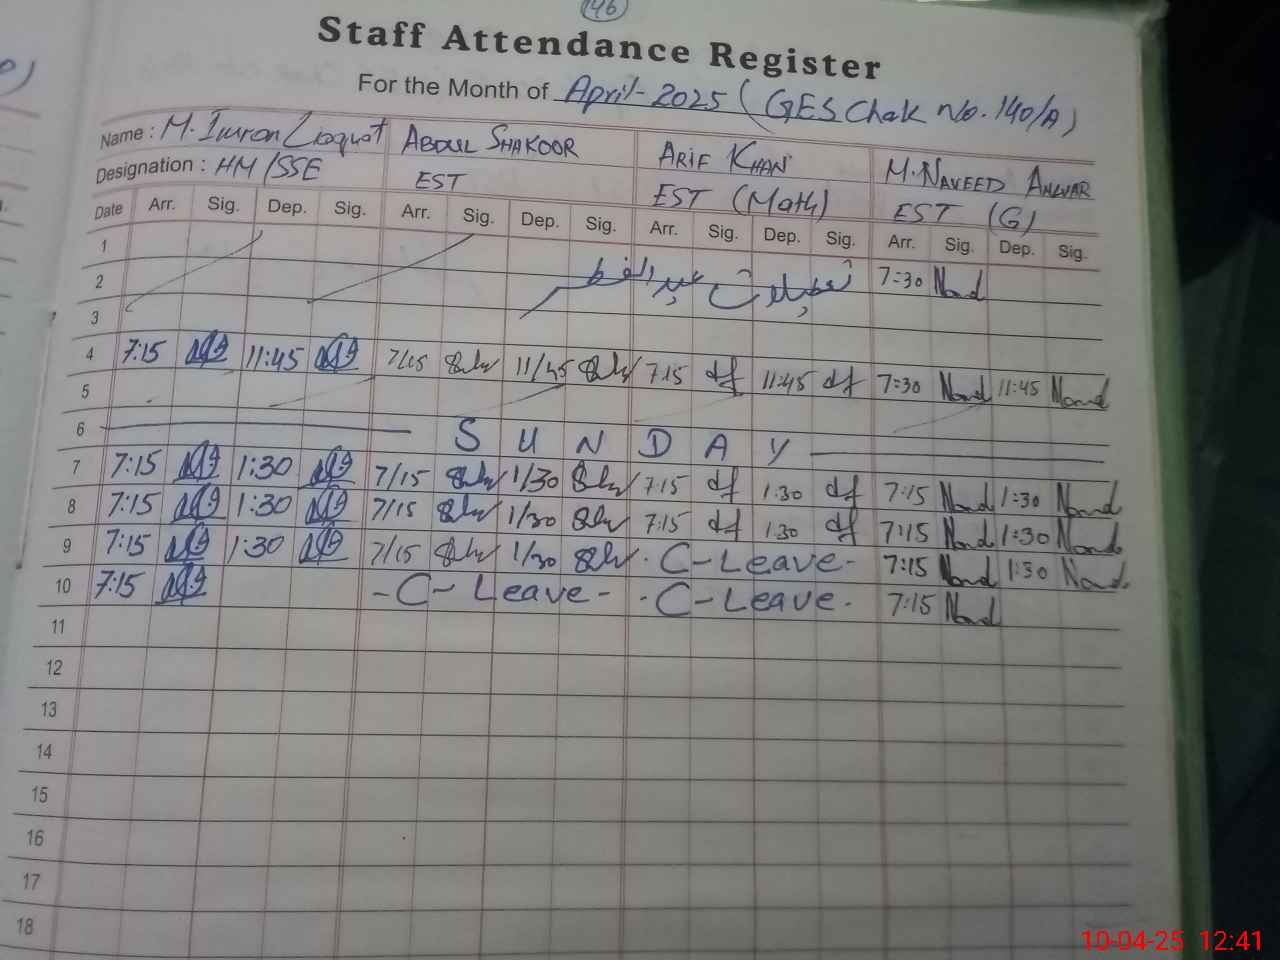 146
Staff Attendance Register
For the Month of April-2025 (GES Chak No. 140/A)
Name : M. Imran Liaquat ABDUL SHAKOOR ARIF KHAN M. NAVEED ANWAR
Designation : HM/SSE EST EST (Math) EST (G)
Date Arr. Sig. Dep. Sig. Arr. Sig. Dep. Sig. Arr. Sig. Dep. Sig. Arr. Sig. Dep. Sig.
1
2 تعطیلات عید الفطر 7:30
3
4 7:15 11:45 7/15 11/45 7:15 11:45 7:30 11:45
5
6 SUNDAY
7 7:15 1:30 7/15 1/30 7:15 1:30 7:15 1:30
8 7:15 1:30 7/15 1/30 7:15 1:30 7:15 1:30
9 7:15 1:30 7/15 1/30 C-Leave- 7:15 1:30
10 7:15 -C- Leave- C-Leave. 7:15
11
12
13
14
15
16
17
18
10-04-25 12:41